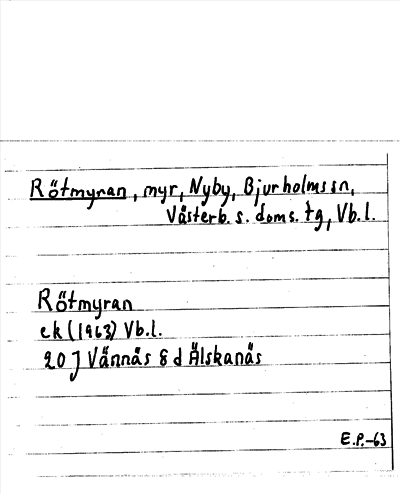 Rötmyran, myr, Nyby, Bjurholms sn,
Västerb. s. doms. tg, Vb.l.
Rötmyran
ek (1963) Vb.l.
20 J Vännäs 8 d Älskanäs
E.P.-63